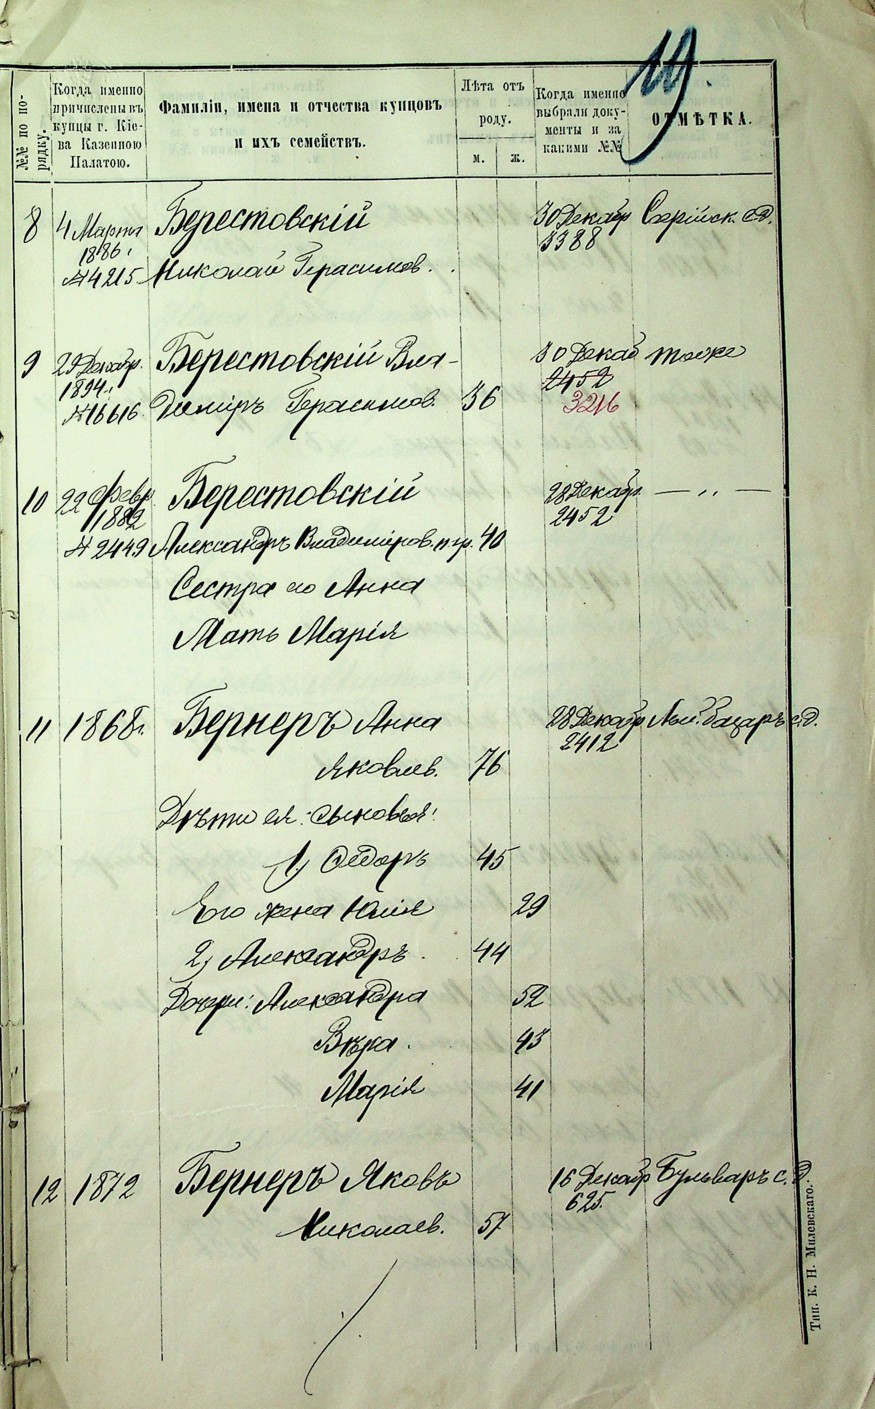 19.
№№ по по-
рядку.
Когда именно
причислены въ
купцы г. Кіе-
ва Казенною
Палатою.
Фамиліи, имена и отчества купцовъ
и ихъ семействъ.
Лѣта отъ
роду.
м. ж.
Когда именно
выбрали доку-
менты и за
какими №№
ОТМѢТКА.
8 4 Марта Берестовскій 30 Декабр
1886. 3388
№4215 Николай Герасимов.
9 29 Декабр. Берестовскій Вла- 30 Декаб тоже
1894. 2452
№16616 диміръ Герасимов. 36 3216
10 22 Февр. Берестовскій 28 Декабр. — „ —
1882 2452
№2449 Александръ Владиміров. 40
Сестра его Анна
Мать Марія
11 1868 г. Бернеръ Анна 28 Декабр с.д.
2412
Яковлев. 76
Дѣти ея: сыновья:
1) Ѳедоръ 45
Его жена Юлія 29
2) Александръ. 44
Дочери: Александра 52
Вѣра. 43
Марія 41
12 1872 Бернеръ Яковъ 16 Декабр Бульваръ с. д
625.
Николаев. 57
Тип. К. Н. Милевскаго.